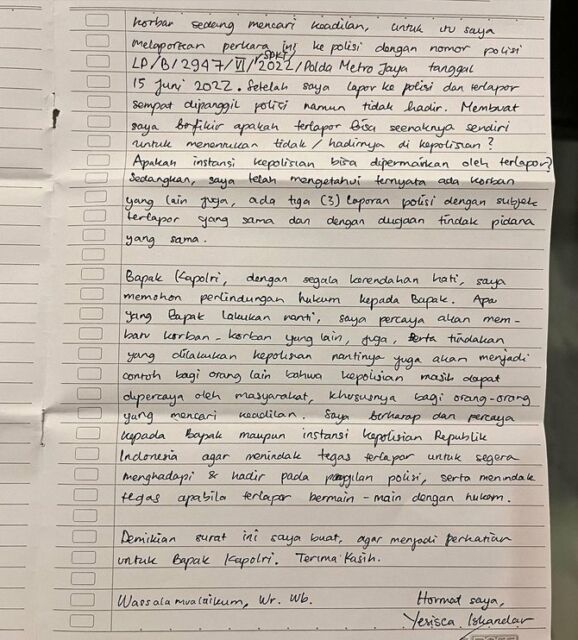 korban sedang mencari keadilan, untuk itu saya
melaporkan perkara ini ke polisi dengan nomor polisi
LP/B/2947/VI/2022/SPKT/Polda Metro Jaya tanggal
15 Juni 2022. Setelah saya lapor ke polisi dan terlapor
sempat dipanggil polisi namun tidak hadir. Membuat
saya berfikir apakah terlapor bisa seenaknya sendiri
untuk menentukan tidak / hadirnya di kepolisian?
Apakah instansi kepolisian bisa dipermainkan oleh terlapor?
Sedangkan, saya telah mengetahui ternyata ada korban
yang lain juga, ada tiga (3) laporan polisi dengan subjek
terlapor yang sama dan dengan dugaan tindak pidana
yang sama.
Bapak Kapolri, dengan segala kerendahan hati, saya
memohon perlindungan hukum kepada Bapak. Apa
yang Bapak lakukan nanti, saya percaya akan mem-
bantu korban-korban yang lain, juga, serta tindakan
yang dilakukan kepolisian nantinya juga akan menjadi
contoh bagi orang lain bahwa kepolisian masih dapat
dipercaya oleh masyarakat, khususnya bagi orang-orang
yang mencari keadilan. Saya berharap dan percaya
kepada Bapak maupun instansi kepolisian Republik
Indonesia agar menindak tegas terlapor untuk segera
menghadapi & hadir pada panggilan polisi, serta menindak
tegas apabila terlapor bermain-main dengan hukum.
Demikian surat ini saya buat, agar menjadi perhatian
untuk Bapak Kapolri. Terima Kasih.
Wassalamualaikum, Wr. Wb.
Hormat saya,
Yerisca Iskandar